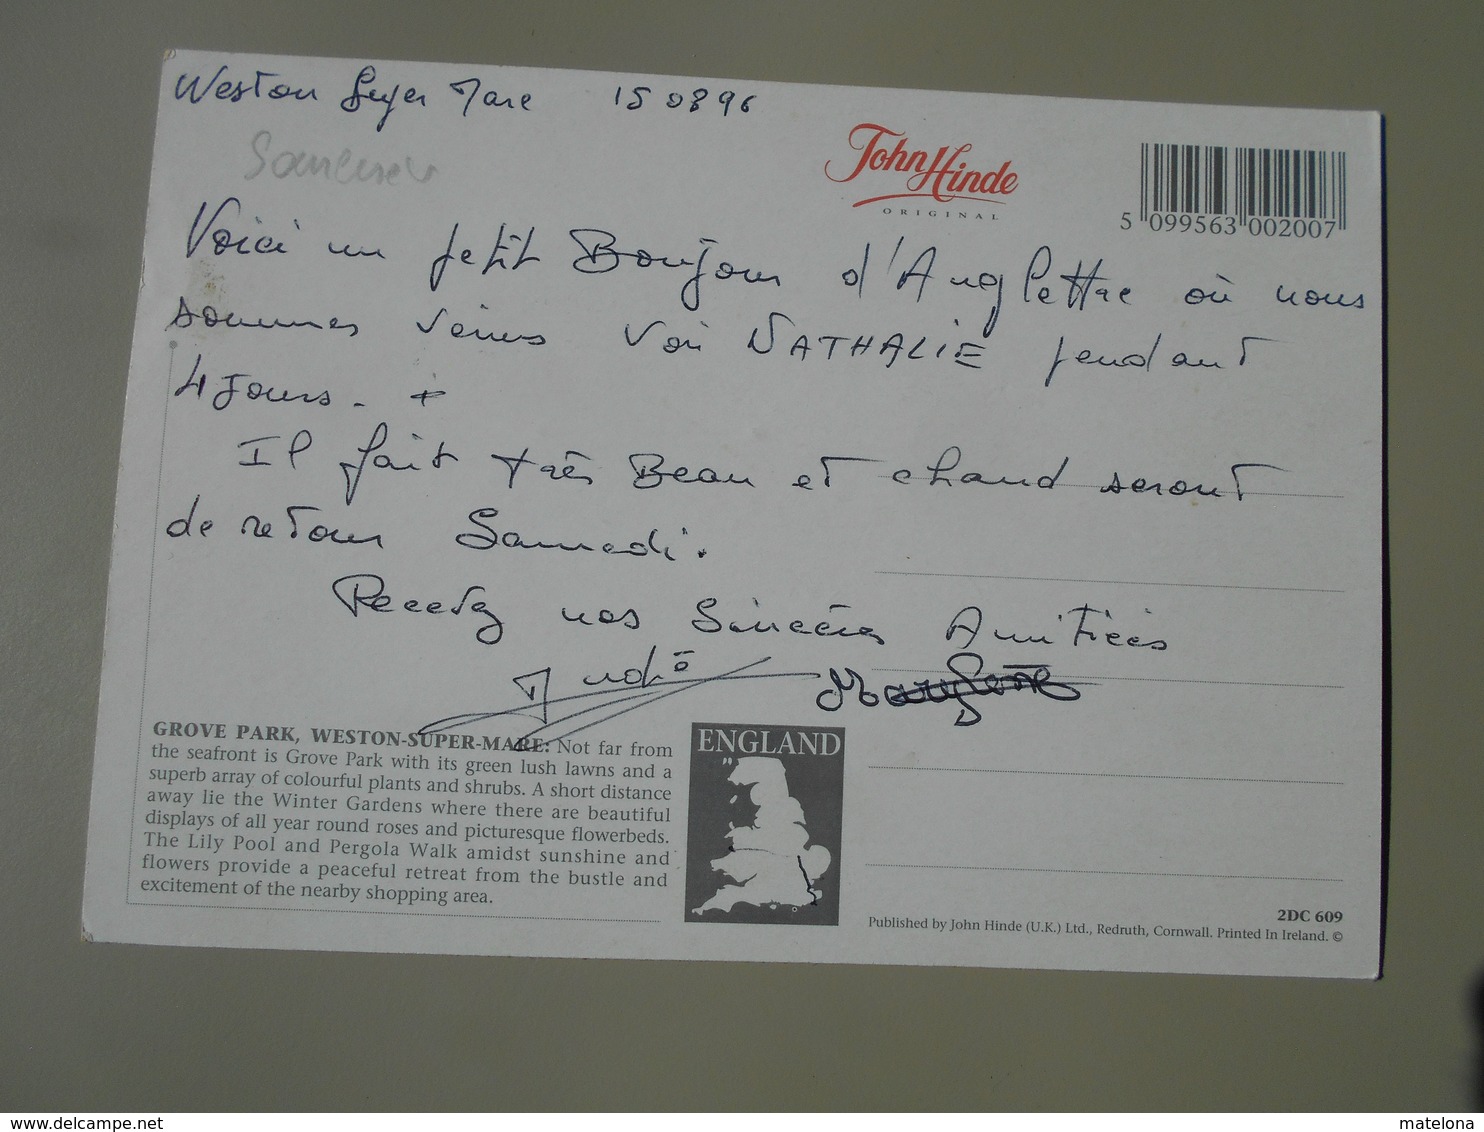 Weston Super Mare 15 08 96
John Hinde
ORIGINAL
5 099563 002007
Voici un petit Bonjour d'Anglettre où nous
sommes venus voir NATHALIE pendant
4 jours. +
Il fait très Beau et chaud seront
de retour Samedi.
Recevez nos Sincères Amitiées
André
GROVE PARK, WESTON-SUPER-MARE: Not far from
the seafront is Grove Park with its green lush lawns and a
superb array of colourful plants and shrubs. A short distance
away lie the Winter Gardens where there are beautiful
displays of all year round roses and picturesque flowerbeds.
The Lily Pool and Pergola Walk amidst sunshine and
flowers provide a peaceful retreat from the bustle and
excitement of the nearby shopping area.
ENGLAND
2DC 609
Published by John Hinde (U.K.) Ltd., Redruth, Cornwall. Printed In Ireland. ©
www.delcampe.net
matelona